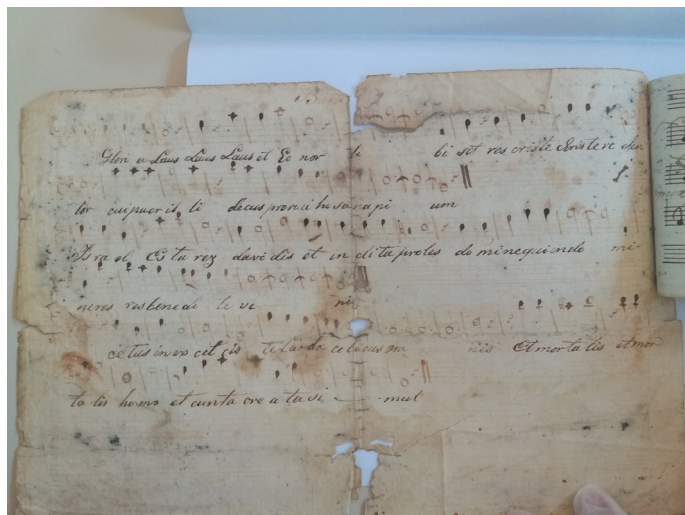 Glori a Laus Laus Laus et Eo nor ti bi sit res criste Criste re den
tor cui puer il, li decus promci hu sana pi um
Isra el Es tu rez davi dis et in cli ta proles do mine qui indo mi
neres res benedi te ve ni
cetus in ex cel cis te Laudo ce licus om nis Et morta lis et mor
ta lis homo et cunta cre a ta si mul